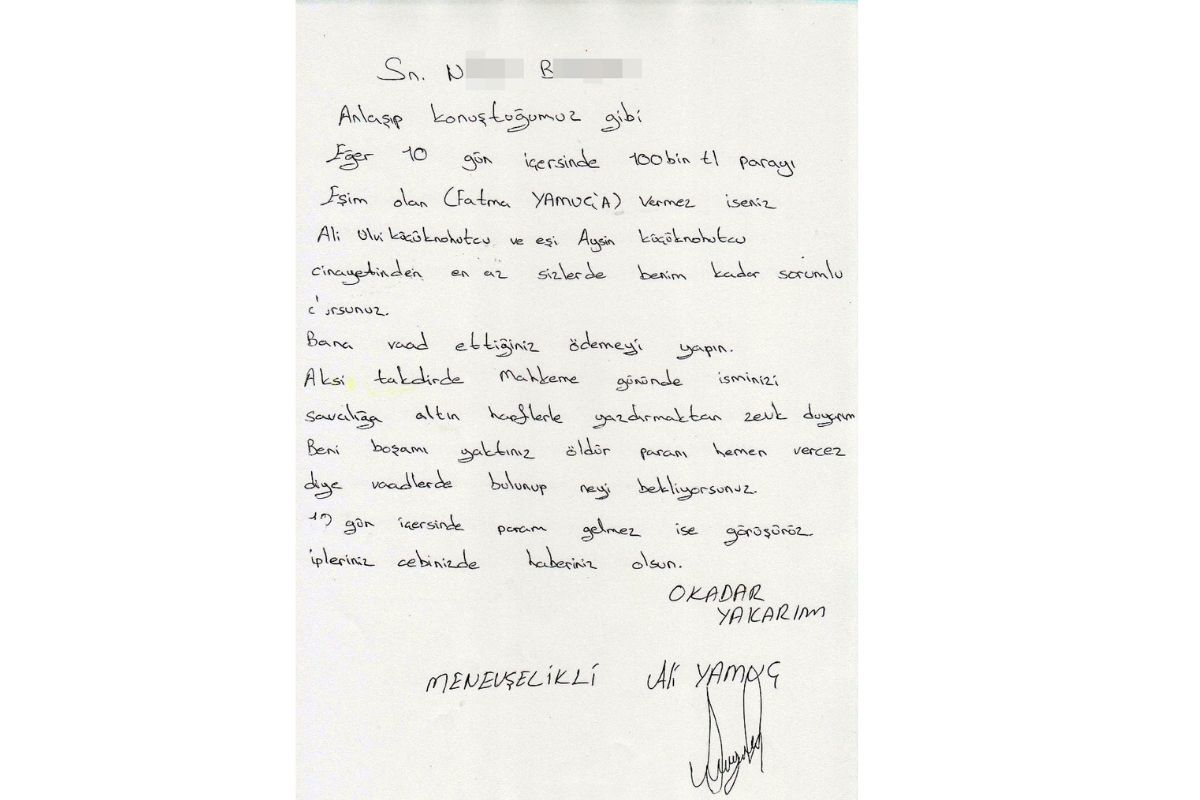 Sn. N B
Anlaşıp konuştuğumuz gibi
Eğer 10 gün içersinde 100bin tl parayı
Eşim olan (Fatma YAMUÇ'A) vermez iseniz
Ali Ulvi küçüknohutcu ve eşi Aysin küçüknohutcu
cinayetinden en az sizlerde benim kadar sorumlu
Bana vaad ettiğiniz ödemeyi yapın.
Aksi takdirde Mahkeme gününde isminizi
savcılığa altın harflerle yazdırmaktan zevk duyarım
Beni boşamı yaktınız öldür paranı hemen vercez
diye vaadlerde bulunup neyi bekliyorsunuz.
10 gün içersinde param gelmez ise görüşürüz
ipleriniz cebinizde haberiniz olsun.
OKADAR
YAKARIM
MENEVŞELİKLİ Ali YAMUÇ